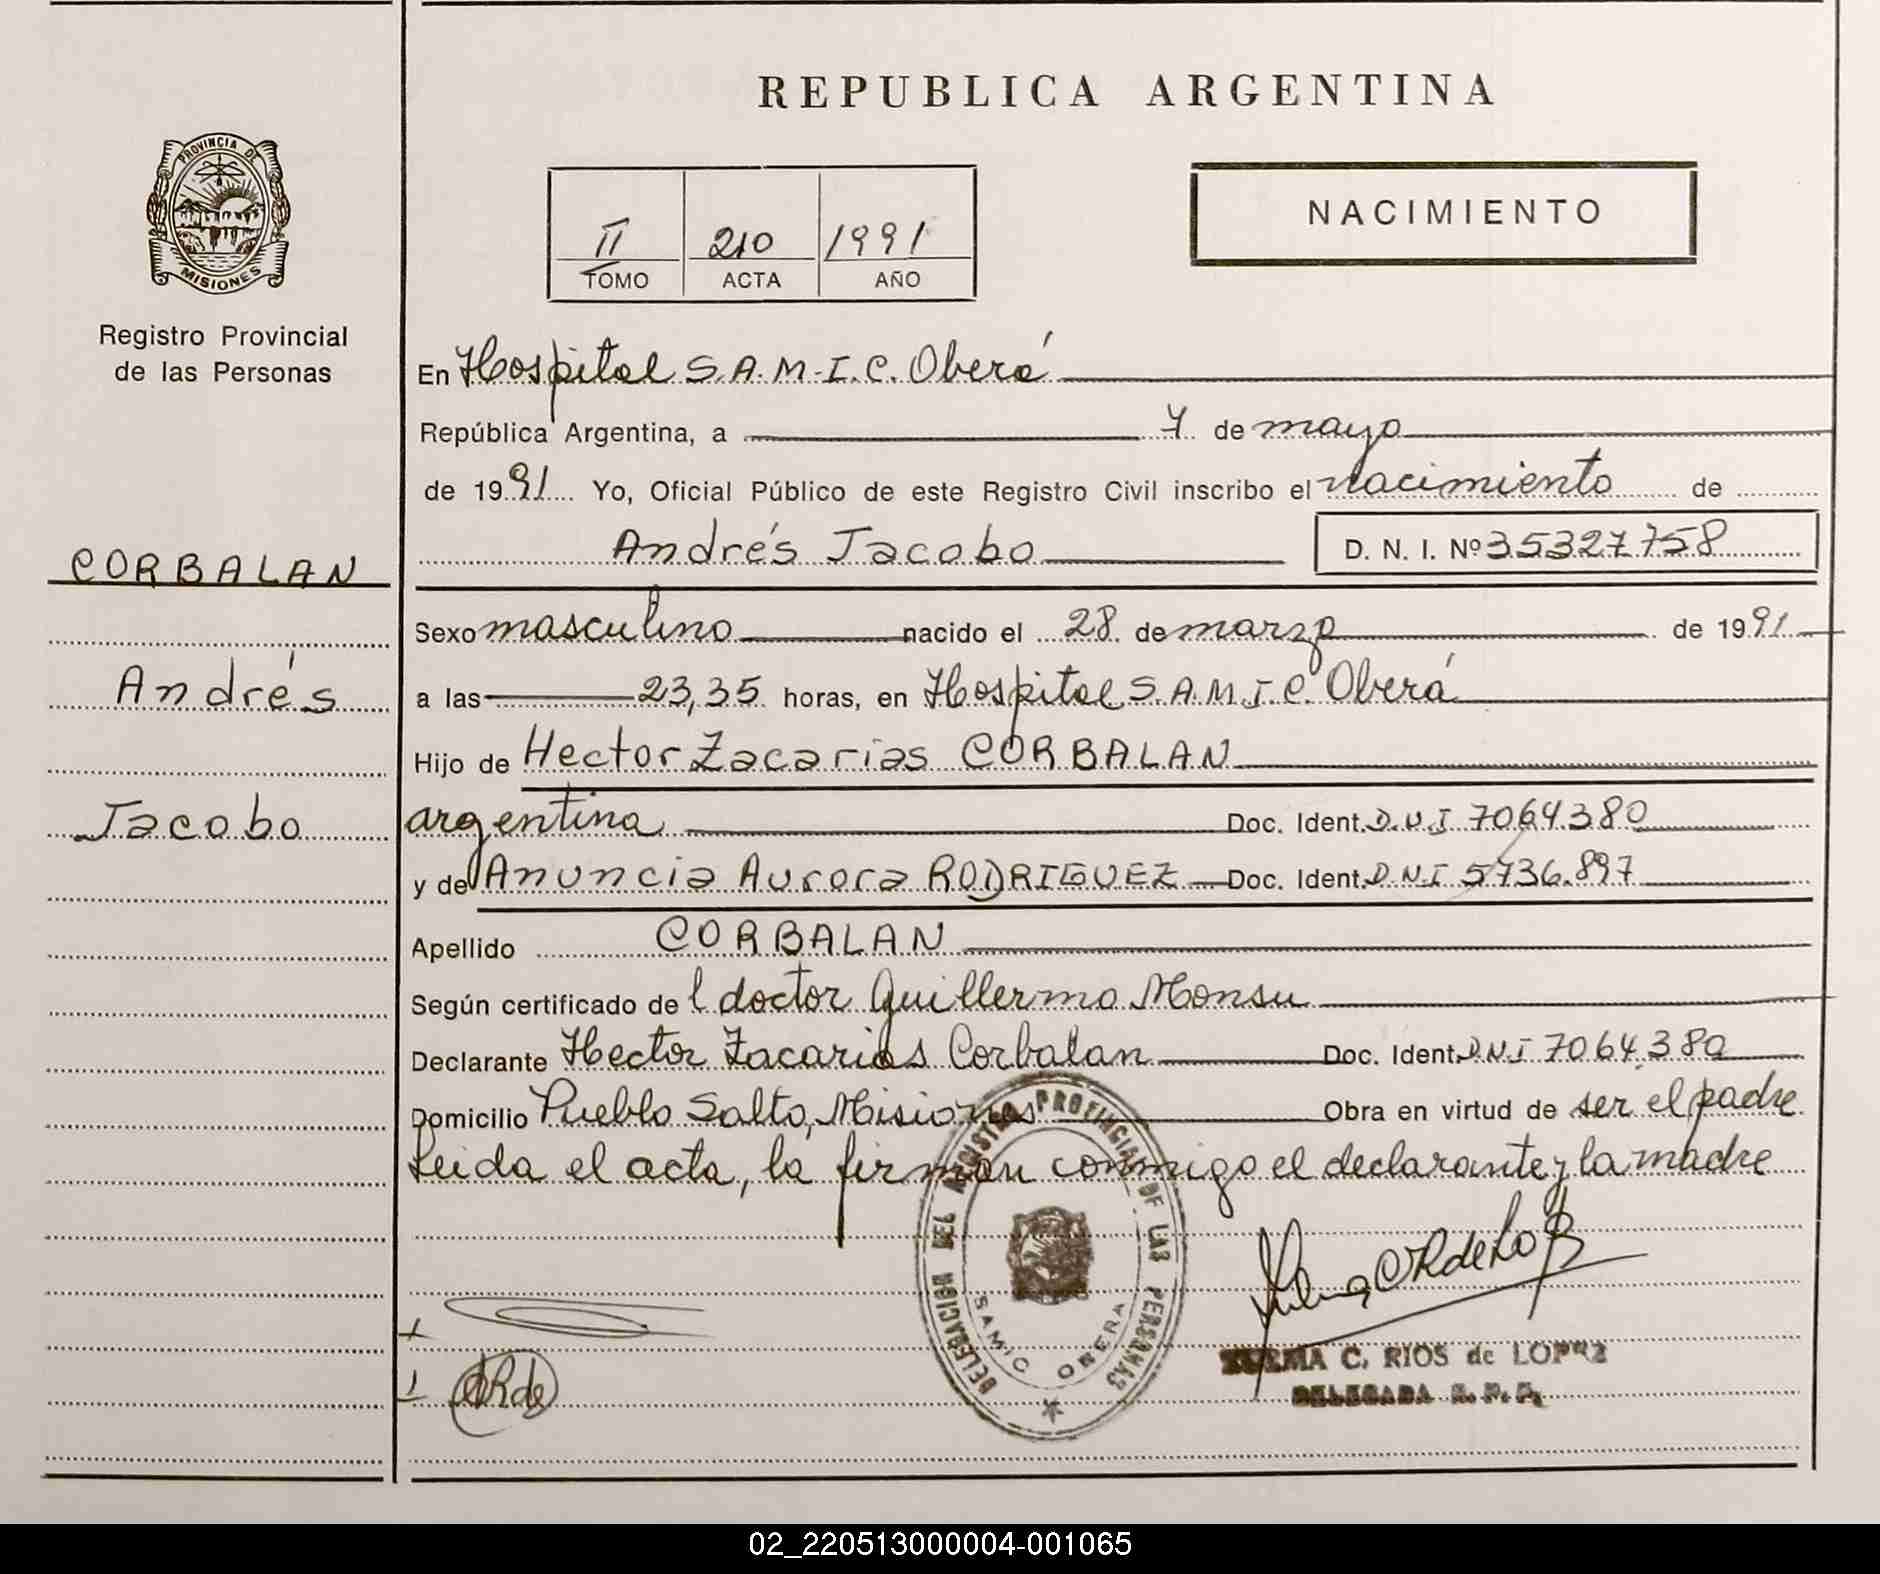 REPUBLICA ARGENTINA
PROVINCIA DE
MISIONES
Registro Provincial
de las Personas
II 210 1991
TOMO ACTA AÑO
NACIMIENTO
En Hospital S.A.M.I.C. Oberá
República Argentina, a 7 de mayo
de 1991 Yo, Oficial Público de este Registro Civil inscribo el nacimiento de
Andrés Jacobo D. N. I. Nº 35327758
CORBALAN
Andrés
Jacobo
Sexo masculino nacido el 28 de marzo de 1991
a las 23,35 horas, en Hospital S.A.M.I.C. Oberá
Hijo de Hector Zacarias CORBALAN
argentina Doc. Ident. D.N.I 7064.380
y de Anuncia Aurora RODRIGUEZ Doc. Ident. D.N.I 5736.897
Apellido CORBALAN
Según certificado de l doctor Guillermo Monsu
Declarante Hector Zacarias Corbalan Doc. Ident. D.N.I 7064.380
Domicilio Pueblo Salto, Misiones Obra en virtud de ser el padre
Leida el acta, la firman conmigo el declarante y la madre
DELEGACION DEL REGISTRO PROVINCIAL DE LAS PERSONAS
SAMIC OBERA
C. RIOS de LOPEZ
DELEGADA R. P. P.
02_220513000004-001065